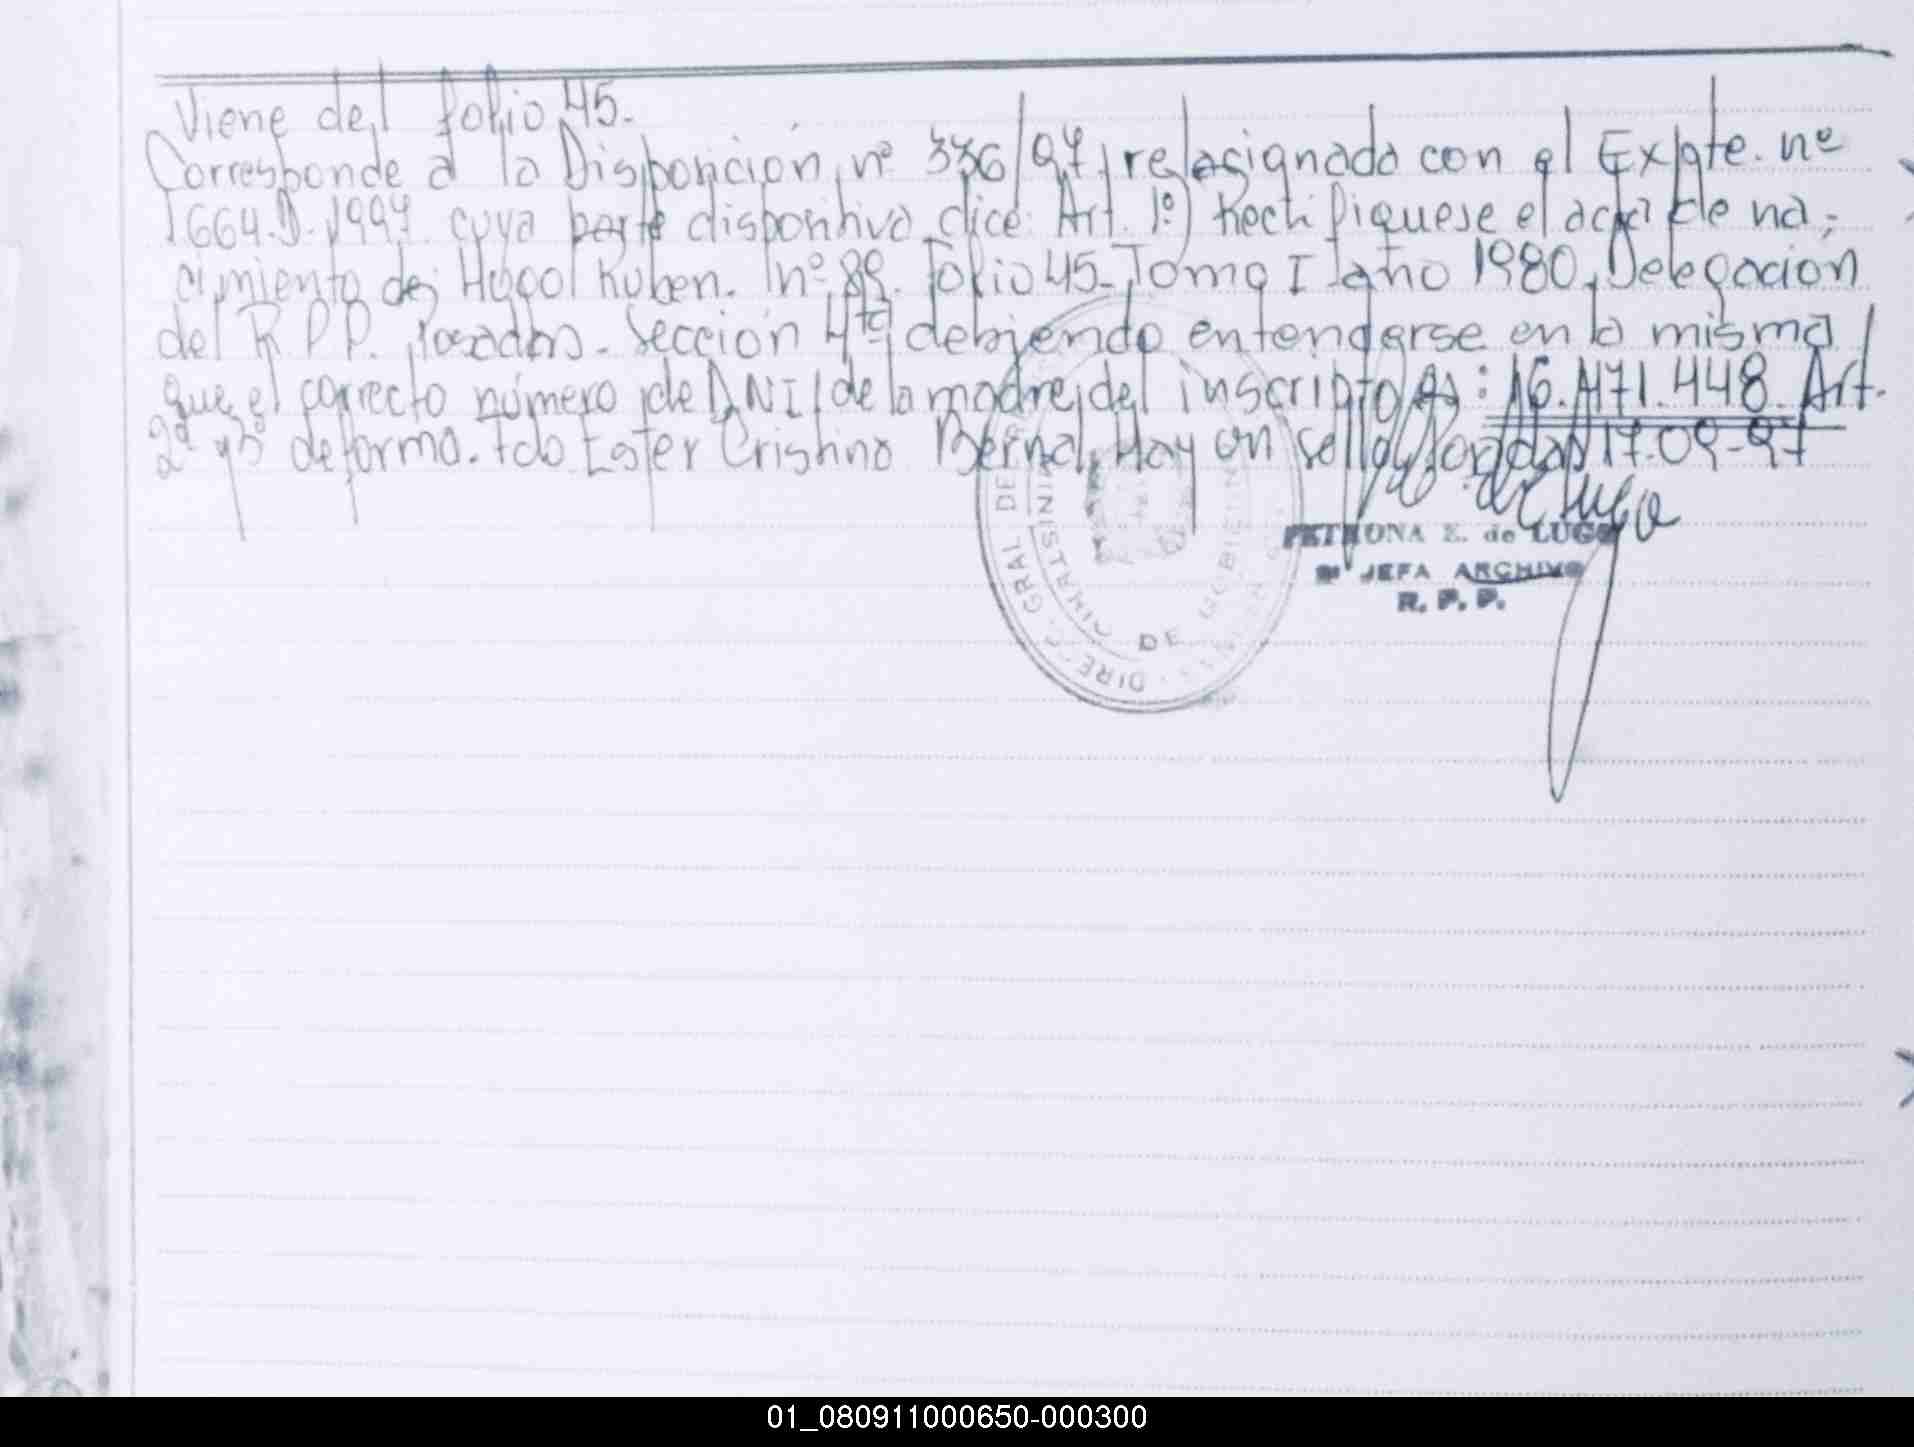 Viene del folio 45.
Corresponde a la Disposición nº 336/97, relasignada con el Expte. nº
1664.D.1997. cuya parte dispositiva dice: Art. 1º) Rectifiquese el acta de na-
cimiento de: Hugo Ruben. nº 89. Folio 45. Tomo I año 1980. Delegación
del R.P.P. Posadas. Sección 4ta, debiendo entenderse en la misma
que el correcto número de DNI de la madre del inscripto es: 16.471.448. Art.
2º y 3º de forma. Fdo Ester Cristina Bernal. Hay un sello. Posadas 17-09-97
de Lugo
PETRONA E. de LUGO
JEFA ARCHIVO
R. P. P.
DIREC. GRAL DE ADMINISTRACIO DE GOBIERN
01_080911000650-000300